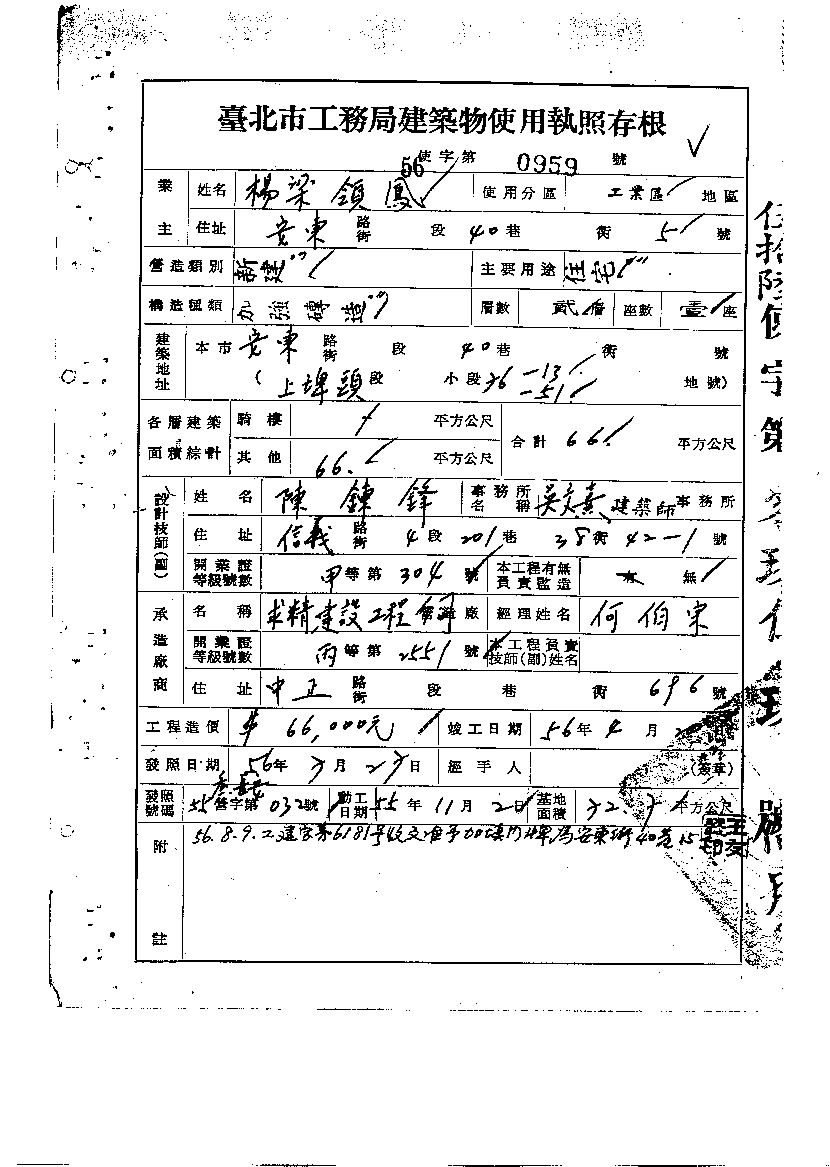 臺北市工務局建築物使用執照存根
56使字第 0959 號
業主 姓名 楊梁領鳳 使用分區 工業區 地區
住址 安東 路街 段 40巷 街 51 號
營造類別 新建 主要用途 住宅
構造種類 加強磚造 層數 貳層 座數 壹座
建築地址 本市 安東 路街 段 40巷 街 號
(上埤頭段 小段36 -13 -51 地號)
各層建築面積綜計 騎樓 平方公尺 合計 66. 平方公尺
其他 66. 平方公尺
設計技師(副) 姓名 陳鍊鋒 事務所名稱 建築師事務所
住址 信義 路街 4段 201巷 38街 42-1號
開業證等級號數 甲等第304號 本工程有無負責監造 無
承造廠商 名稱 求精建設工程 廠 經理姓名 何伯宗
開業證等級號數 丙等第2551號 本工程負責技師(副)姓名
住址 中正 路街 段 巷 街 696號
工程造價 $ 66,000元 竣工日期 56年4月
發照日期 56年 月2 日 經手人 (簽章)
發照號碼 55營字第032號 動工日期 55年11月2日 基地面積 32. 平方公尺
附註 56.8.9.工建字第6181號收文准予加填門牌為安東街40巷15
伍拾陸使字第